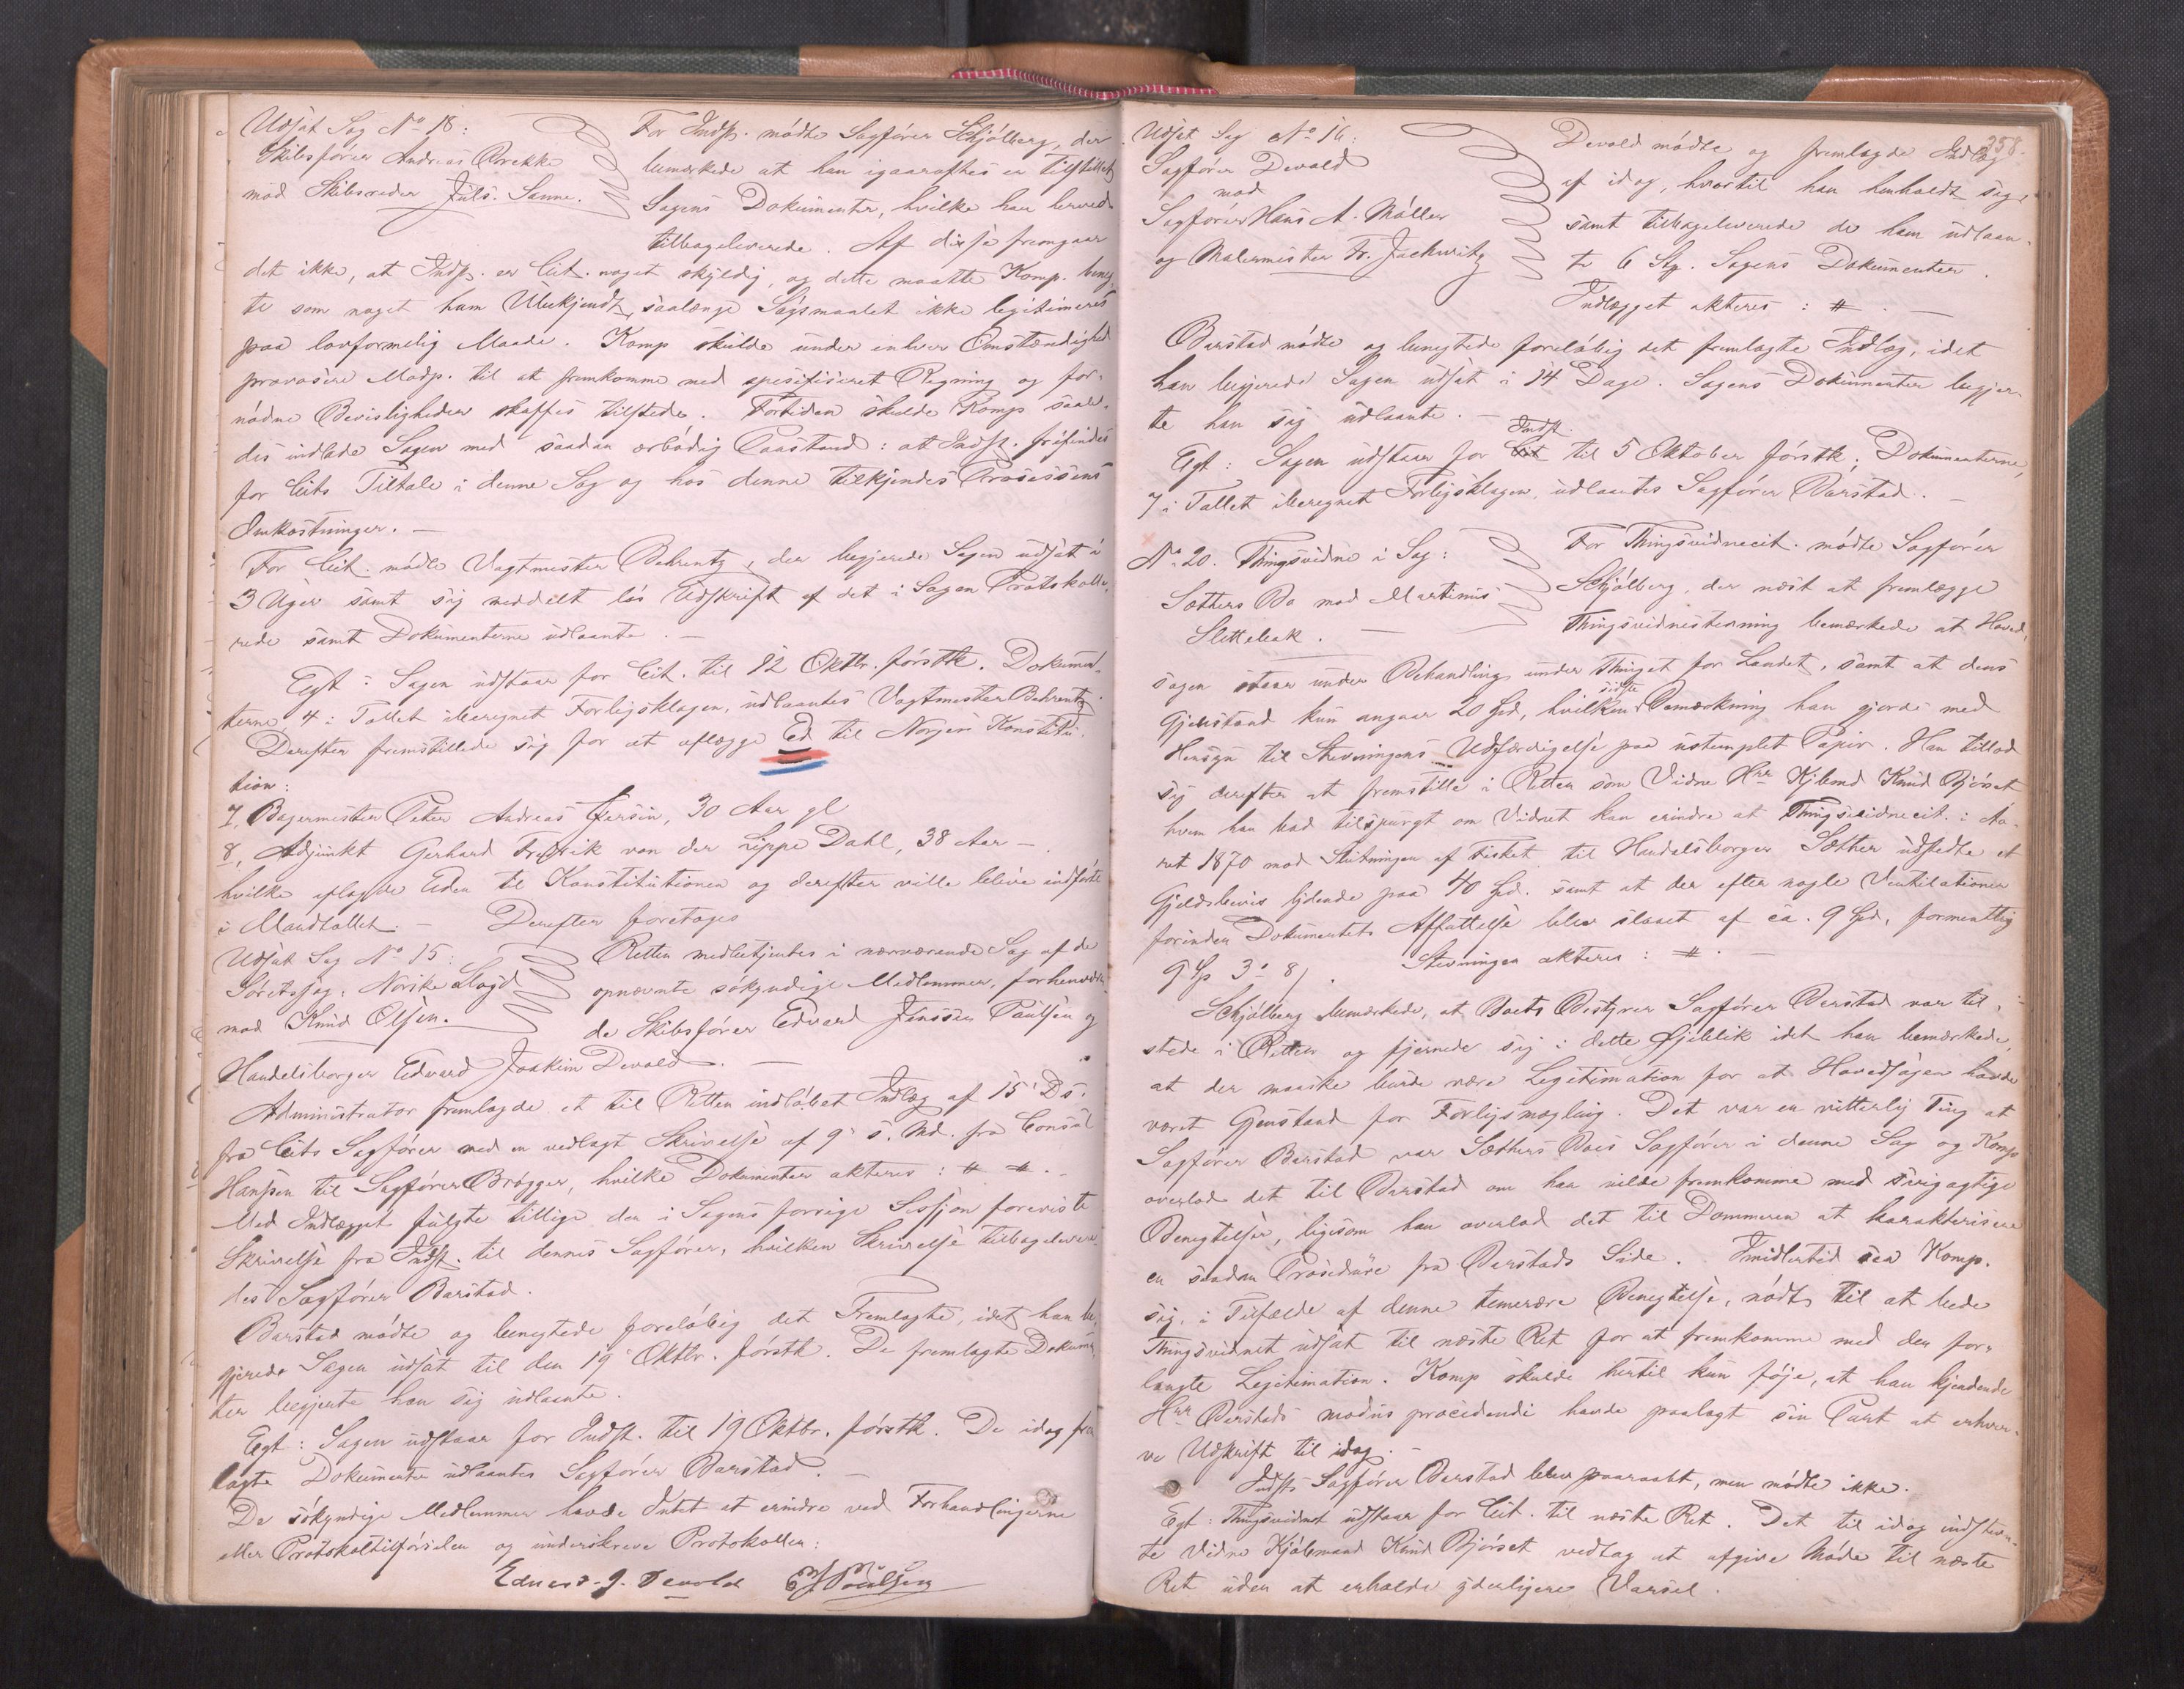 Udsat Sag No 18:
Skibsfører Andreas Brekke
mod Skibsreder Juls. Sanne.
For Indst. mødte Sagfører Schjølberg, der
bemærkede at han igaaraftes er tilstillet
Sagens Dokumenter, hvilke han herved
tilbageleverede. Af disse fremgaar
det ikke, at Indst. er Cit. noget skyldig, og dette maatte Komp. beneg-
te som noget ham Ubekjendt, saalænge Søgsmaalet ikke legitimeres
paa lovformelig Maade. Komp skulde under enhver Omstændighed
provosere Modp. til at fremkomme med spesifiseret Regning og for-
nødne Bevisligheder skaffes tilstede. Fortiden skulde Komp saale-
des indlade Sagen med saadan ærbødig Paastand: at Indst. frifindes
for Cits Tiltale i denne Sag og hos denne tilkjendes Prosessens
Omkostninger. —
For Cit. mødte Vagtmester Behrentz, der begjerede Sagen udsat i
3 Uger samt sig meddelt løs Udskrift af det i Sagen Protokolle-
rede samt Dokumenterne udlaante. —
Egt: Sagen udstaar for Cit. til 12 Oktbr. førstk. Dokumen-
terne 4 i Tallet iberegnet Forligsklagen, udlaantes Vagtmester Behrentz.
Derefter fremstillede sig for at aflægge Ed til Norges Konstitu-
tion:
7, Bagermester Peter Andreas Jersin, 30 Aar gl
8, Adjunkt Gerhard Fredrik von der Lippe Dahl, 38 Aar —.
hvilke aflagde Eden til Konstitutionen og derefter ville blive indførte
i Mandtallet. — Derefter foretoges
Udsat Sag No 15:
Søretssag: Norske Lloyd
mod Knud Olsen.
Retten medbetjentes i nærværende Sag af de
opnævnte søkyndige Medlemmer, forhenværen-
de Skibsfører Edvard Jenssen Paulsen og
Handelsborger Edvard Joakim Devold. —
Administrator fremlagde et til Retten indløbet Indlæg af 15 Ds.
fra Cits Sagfører med en vedlagt Skrivelse af 9 s. Md. fra Consul
Hanssen til Sagfører Brøgger, hvilke Dokumenter akteres: # #. —
Med Indlægget fulgte tillige den i Sagens forrige Session foreviste
Skrivelse fra Indst. til dennes Sagfører, hvilken Skrivelse tilbagelevere-
des Sagfører Barstad.
Barstad mødte og benegtede foreløbig det Fremlagte, idet han be-
gjerede Sagen udsat til den 19 Oktbr. førstk. De fremlagte Dokumen-
ter begjerte han sig udlaante.
Egt: Sagen udstaar for Indst. til 19 Oktbr. førstk. De idag frem
lagte Dokumenter udlaantes Sagfører Barstad. —
De søkyndige Medlemmer havde Intet at erindre ved Forhandlingerne
eller Protokoltilførselen og underskreve Protokollen:
Edvard J. Devold EJPaulsen
358.
Udsat Sag No 16:
Sagfører Devold
mod
Sagfører Hans A. Møller
og Malermester Fr. Jachwitz
Devold mødte og fremlagde Indlæg
af idag, hvortil han henholdt sig,
samt tilbageleverede de ham udlaan-
te 6 Stk. Sagens Dokumenter.
Indlægget akteres: #. —
Barstad mødte og benegtede foreløbig det fremlagte Indlæg, idet
han begjerede Sagen udsat i 14 Dage. Sagens Dokumenter begjer-
te han sig udlaante. —
Indst.
Egt: Sagen udstaar for Cit til 5 Oktober førstk; Dokumenterne,
7 i Tallet iberegnet Forligsklagen, udlaantes Sagfører Barstad. —
No 20. Thingsvidne i Sag:
Sæthers Bo mod Martinus
Slettebak. —
For Thingsvidnecit. mødte Sagfører
Schjølberg, der næst at fremlægge
Thingsvidnestevning bemærkede at Hoved-
sagen staar under Behandling under Thinget for Landet, samt at dens
Gjenstand kun angaar 20 Spd, hvilken sidste Bemærkning han gjorde med
Hensyn til Stevningens Udfærdigelse paa ustemplet Papir. Han tillod
sig derefter at fremstille i Retten som Vidne Hrr Kjøbmd Knud Bjørset
hvem han bad tilspurgt om Vidnet kan erindre at Thingsvidnecit. i Aa-
ret 1870 mod Slutningen af Fisket til Handelsborger Sæther udstedte et
Gjeldsbevis lydende paa 40 Spd. samt at der efter nogle Ventilationer
forinden Dokumentets Affattelse blev slaaet af ca. 9 Spd, formentlig
9 Sp 3 8/. Stevningen akteres: #. —
Schjølberg bemærkede, at Boets Bestyrer Sagfører Barstad var til-
stede i Retten og fjernede sig i dette Øjeblik idet han bemærkede,
at der maaske burde være Legitimation for at Hovedsagen havde
været Gjenstand for Forligsmægling. Det var en vitterlig Ting at
Sagfører Barstad var Sæthers Boes Sagfører i denne Sag og Komp
overlod det til Barstad om han vilde fremkomme med svigagtige
Benegtelser, ligesom han overlod det til Dommeren at karakterisere
en saadan Prosedure fra Barstads Side. Imidlertid saa Komp.
sig, i Tilfælde af denne temerære Benegtelse, nødt til at bede
Thingsvidnet udsat til næste Ret for at fremkomme med den for-
langte Legitimation. Komp skulde hertil kun føje, at han kjendende
Hrr Barstads modus procedendi havde paalagt sin Part at erhver-
ve Udskrift til idag. —
Indsts Sagfører Barstad blev paaraabt, men mødte ikke.
Egt: Thingsvidnet udstaar for Cit. til næste Ret. Det til idag indstevn-
te Vidne Kjøbmand Knud Bjørset vedtog at afgive Møde til næste
Ret uden at erholde yderligere Varsel.